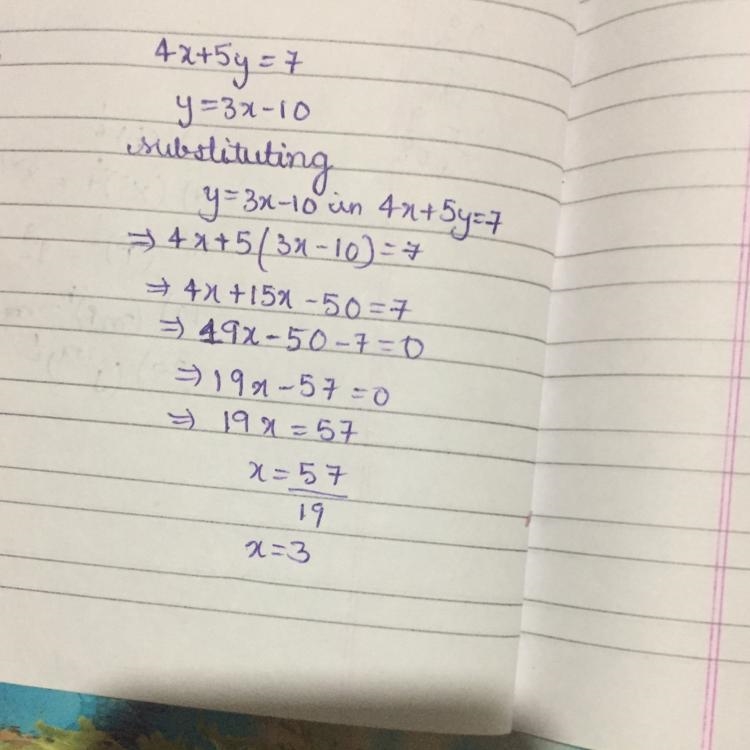 4x+5y=7
y=3x-10
substituting
y=3x-10 in 4x+5y=7
⇒ 4x+5(3x-10)=7
⇒ 4x+15x-50=7
⇒ 19x-50-7=0
⇒ 19x-57=0
⇒ 19x=57
x=57
19
x=3